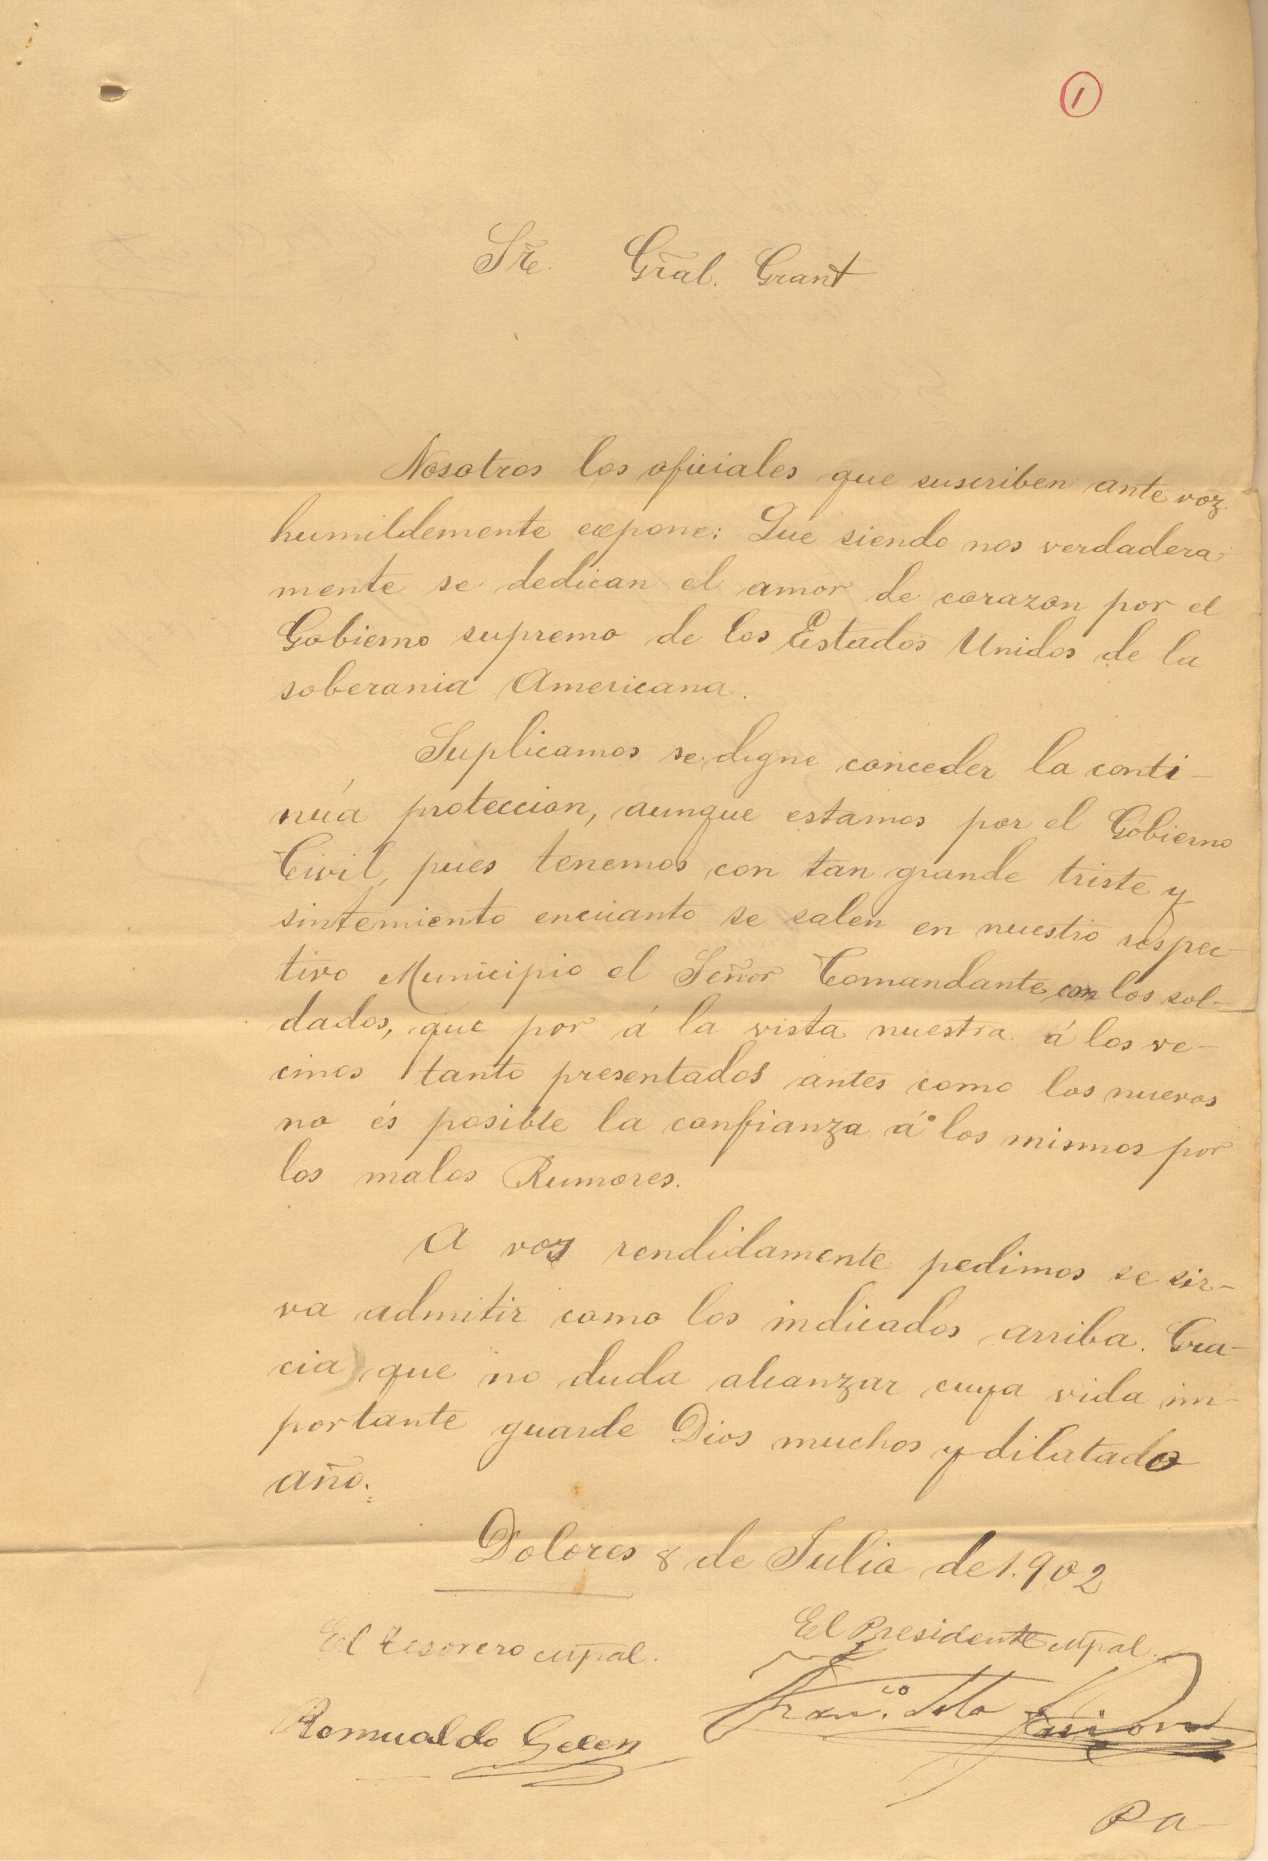 1
Sr̃e. Gr̃al. Grant
Nosotros los oficiales que suscriben ante voz
humildemente expone: Que siendo nos verdadera-
mente se dedican el amor de corazon por el
Gobierno supremo de los Estados Unidos de la
soberania Americana.
Suplicamos se digne conceder la conti-
núa proteccion, aunque estamos por el Gobierno
Civil, pues tenemos con tan grande triste y
sintemiento encuanto se salen en nuestro respec-
tivo Municipio el Señor Comandante con los sol-
dados, que por á la vista nuestra á los ve-
cinos tanto presentados antes como los nuevos
no és posible la confianza á los mismos por
los malos Rumores.
A voz rendidamente pedimos se sir-
va admitir como los indicados arriba. Gra-
cia que no duda alcanzar cuya vida im-
portante guarde Dios muchos y dilatado
año.
Dolores 8 de Julio de 1.902
El tesorero mpal. El Presidente mpal.
Romualdo Franco.
Pa-